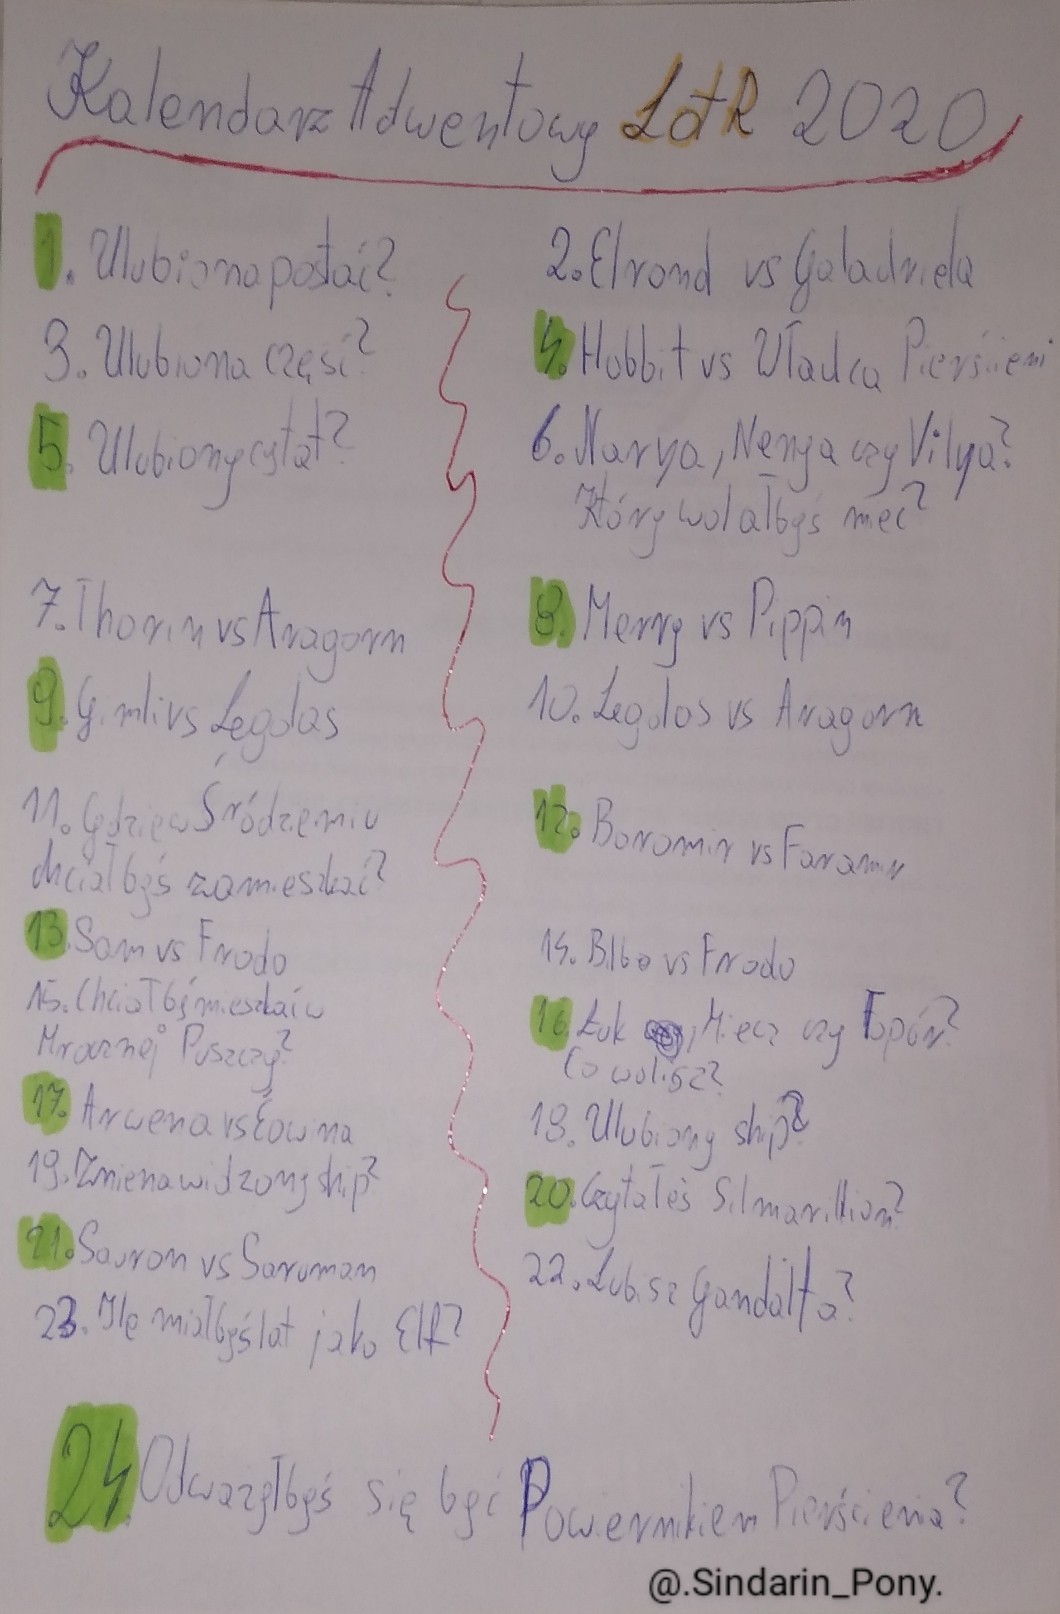 Kalendarz Adwentowy LotR 2020
1. Ulubiona postać?
2. Elrond vs Galadriela
3. Ulubiona część?
4. Hobbit vs Władca Pierścieni
5. Ulubiony cytat?
6. Narya, Nenya czy Vilya?
Który wolałbyś mieć?
7. Thorin vs Aragorn
8. Merry vs Pippin
9. Gimli vs Legolas
10. Legolas vs Aragorn
11. Gdzie w Śródziemiu
chciałbyś zamieszkać?
12. Boromir vs Faramir
13. Sam vs Frodo
14. Bilbo vs Frodo
15. Chciałbyś mieszkać w
Mrocznej Puszczy?
16. Łuk, Miecz czy Topór?
Co wolisz?
17. Arwena vs Éowina
18. Ulubiony ship?
19. Znienawidzony ship?
20. Czytałeś Silmarillion?
21. Sauron vs Saruman
22. Lubisz Gandalfa?
23. Ile miałbyś lat jako Elf?
24. Odważyłbyś się być Powiernikiem Pierścienia?
@.Sindarin_Pony.